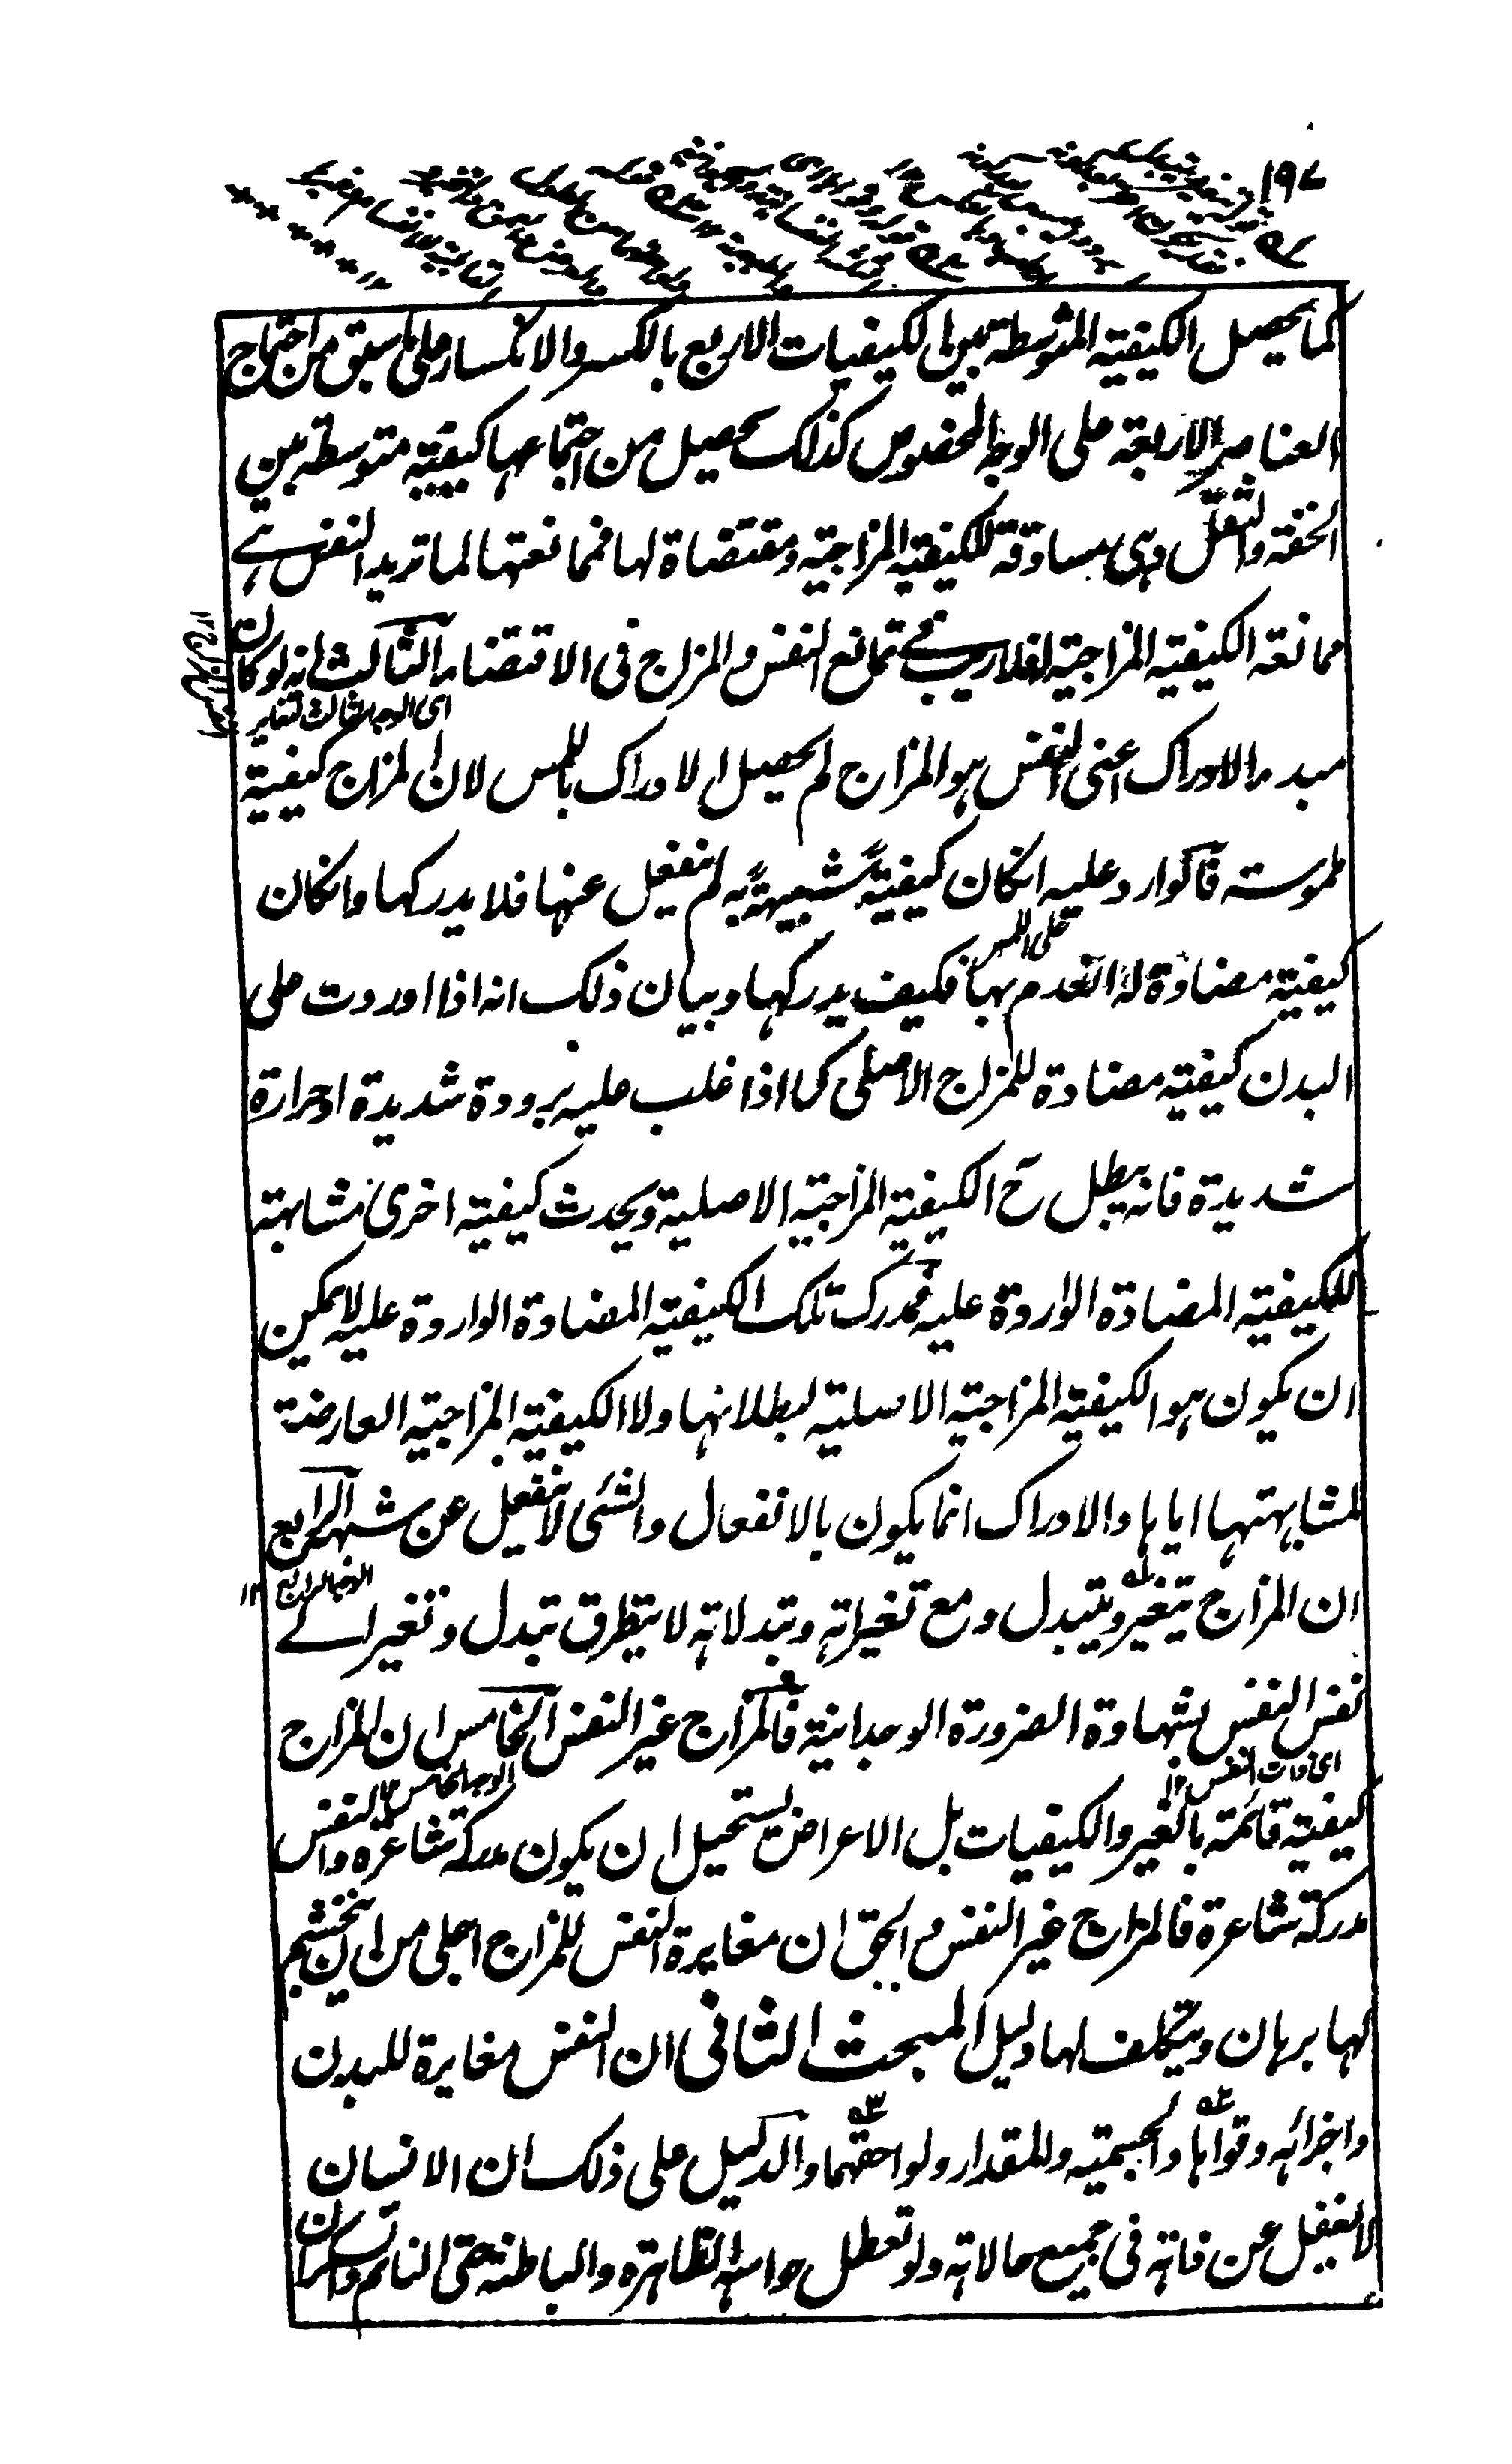 ١٩٧
كما يحصل الكيفية المتوسطة بين الكيفيات الاربع بالكسر والانكسار على ما سبق من اجتماع
العناصر الاربعة على الوجه المخصوص كذلك يحصل من اجتماعها كيفية متوسطة بين
الخفة والثقل وهى مساوقة للكيفية المزاجية ومقتضاة لها فممانعتها لما تريد النفس هے
ممانعة الكيفية المزاجية لها فلا ريب فے تمانع النفس والمزاج فى الاقتضاء الثالث انه لو كان
اى الوجه الثالث لتغاير
مبدء الادراك اعنى النفس هو المزاج لم يحصل الادراك باللمس لان المزاج كيفية
ملموسة فالوارد عليه انكان كيفية شبيهة به لم ينفعل عنها فلا يدركها وانكان
كيفية مضادة له انعدم بها فكيف يدركها وبيان ذلك انه اذا اوردت على
البدن كيفية مضادة للمزاج الاصلى كما اذا غلب عليه برودة شديدة او حرارة
شديدة فانه يبطل ح الكيفية المزاجية الاصلية ويحدث كيفية اخرى مشابهة
للكيفية المضادة الواردة عليه فمدرك تلك الكيفية المضادة الواردة عليه لا يمكن
ان يكون هو الكيفية المزاجية الاصلية لبطلانها ولا الكيفية المزاجية العارضة
لمشابهتها اياها والادراك انما يكون بالانفعال والشئ لا ينفعل عن شبهه الرابع
الوجه الرابع ١٢
ان المزاج يتغير ويتبدل ومع تغيراته وتبدلاته لا يتطرق تبدل وتغير الے
نفس النفس بشهادة الضرورة الوجدانية فالمزاج غير النفس الخامس ان المزاج
اى ذات النفس ١٢
الوجه الخامس ١٢
كيفية قائمة بالغير والكيفيات بل الاعراض يستحيل ان يكون مدركة شاعرة والنفس
مدركة شاعرة فالمزاج غير النفس والحق ان مغايرة النفس للمزاج اجلى من ان يتجشم
لها برهان ويتكلف لها دليل المبحث الثانى ان النفس مغايرة للبدن
واجزائه وقواها والجسمية والمقدار ولواحقهما والدليل على ذلك ان الانسان
لا يغفل عن ذاته فى جميع حالاته ولو تعطل حواسه الظاهرة والباطنة حتى النائم والسكران